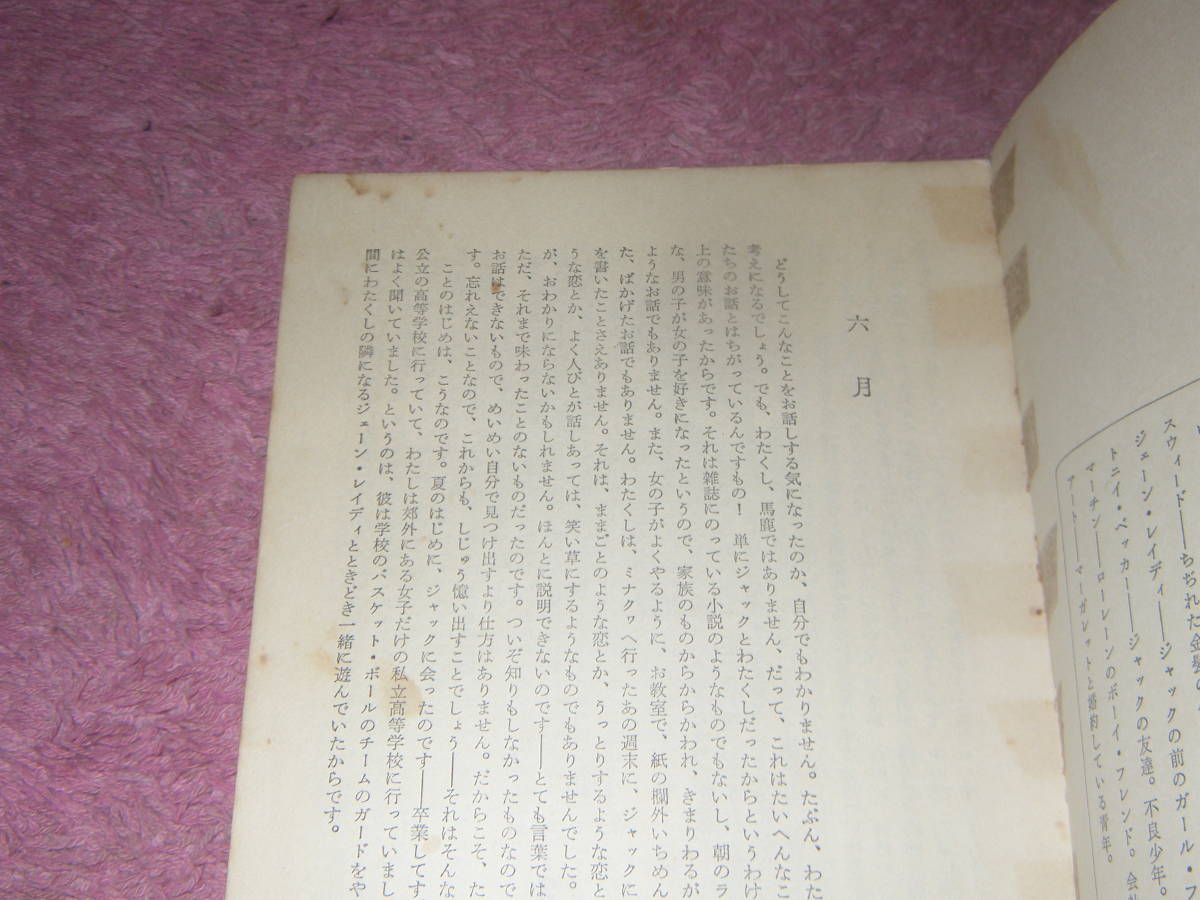 スウィード――ちぢれた金髪の
ジェーン・レイディ――ジャックの前のガール・フ
トニイ・ベッカー――ジャックの友達。不良少年。
マーチン――ローレーンのボーイ・フレンド。会社
アート――マーガレットと婚約している青年。
六月
どうしてこんなことをお話しする気になったのか、自分でもわかりません。たぶん、わた
考えになるでしょう。でも、わたくし、馬鹿ではありません、だって、これはたいへんなこ
たちのお話とはちがっているんですもの！　単にジャックとわたくしだったからというわけ
上の意味があったからです。それは雑誌にのっている小説のようなものでもないし、朝のラ
な、男の子が女の子を好きになったというので、家族のものからからかわれ、きまりわるが
ようなお話でもありません。また、女の子がよくやるように、お教室で、紙の欄外いちめん
た、ばかげたお話でもありません。わたくしは、ミナクヮへ行ったあの週末に、ジャックに
を書いたことさえありません。それは、ままごとのような恋とか、うっとりするような恋と
うな恋とか、よく人びとが話しあっては、笑い草にするようなものでもありませんでした。
が、おわかりにならないかもしれません。ほんとに説明できないのです――とても言葉では
ただ、それまで味わったことのないものだったのです。ついぞ知りもしなかったものなので
お話はできないもので、めいめい自分で見つけ出すより仕方はありません。だからこそ、た
す。忘れえないことなので、これからも、しじゅう憶い出すことでしょう――それはそんな
ことのはじめは、こうなのです。夏のはじめに、ジャックに会ったのです――卒業してす
公立の高等学校に行っていて、わたしは郊外にある女子だけの私立高等学校に行っていまし
はよく聞いていました。というのは、彼は学校のバスケット・ボールのチームのガードをや
間にわたくしの隣になるジェーン・レイディとときどき一緒に遊んでいたからです。